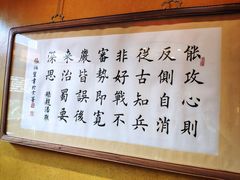 能攻心則
反側自消
從古知兵
非好戰不
審勢即寬
嚴皆誤後
來治蜀要
深思